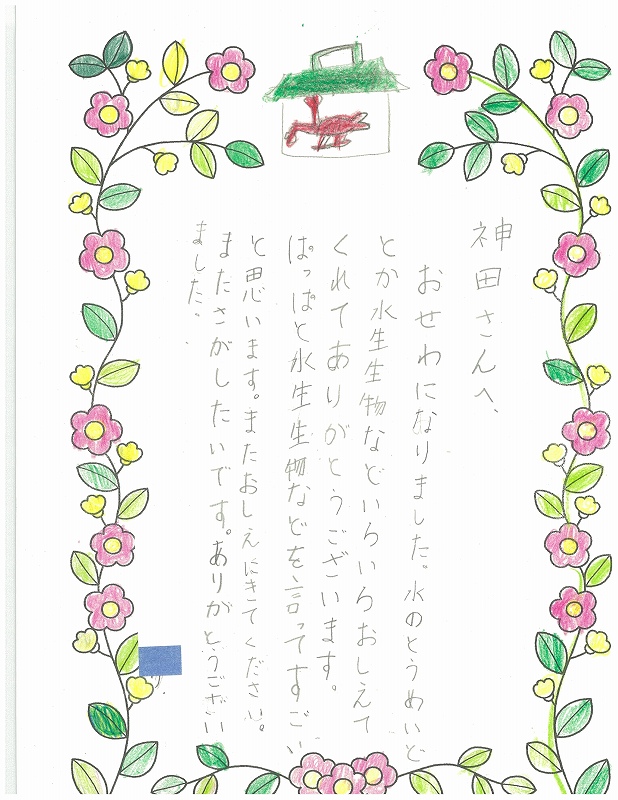 神田さんへ、
おせわになりました。水のとうめいど
とか水生生物などいろいろおしえて
くれてありがとうございます。
ぱっぱと水生生物などを言ってすごい
と思います。またおしえにきてください。
またさがしたいです。ありがとうござい
ました。